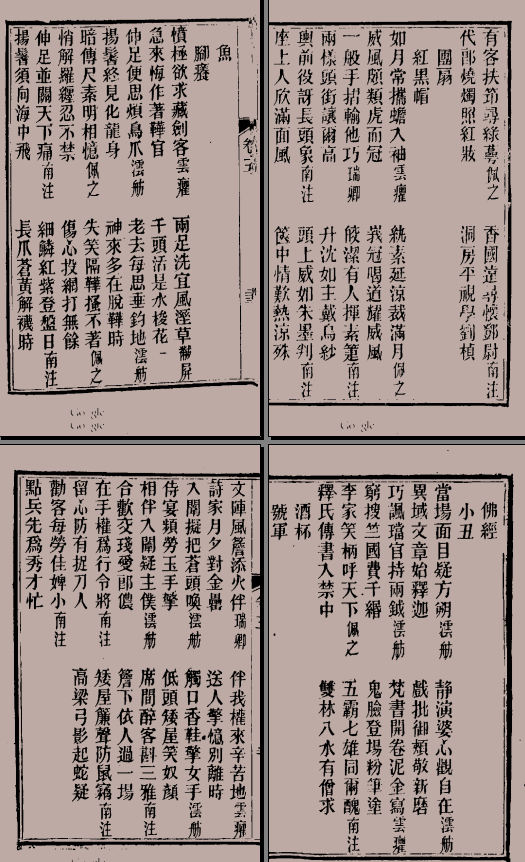 有客扶筇尋綠蕚佩之 香國遠尋懷鄧尉南注
代郎燒燭照紅妝 洞房平視學劉楨
團扇
紅黑帽
如月常攜蟾入袖雲癯 紈素延涼裁滿月佩之
威風頗類虎而冠 峩冠喝道耀威風
一般手摺輸他巧瑞卿 皎潔有人揮素箑南注
兩樣頭銜讓爾高 升沈如主戴烏紗
輿前役訝長頭象南注 頭上威如朱墨判南注
座上人欣滿面風 篋中情歎熱涼殊
魚
腳癢
憤極欲求藏劍客雲癯 兩足洗宜風溼草黼屏
急來悔作著鞾官 千頭活是水梭花
伸足便思煩鳥爪澐舫 老去每思垂釣地澐舫
揚鬐終見化龍身 神來多在脫鞾時
賠傳尺素明相憶佩之 失笑隔鞾搔不著佩之
悄解羅纏忍不禁 傷心投網打無餘
伸足並關天下痛南注 細鱗紅紫登盤日南注
揚鬐須向海中飛 長爪蒼黃解襪時
佛經
小丑
當場面目疑方朔澐舫 靜演婆心觀自在澐舫
異域文章始釋迦 戲批御頰敬新磨
巧諷璫官持兩鉞澐舫 梵書開卷泥金寫雲癯
窮搜竺國費千緡 鬼臉登場粉筆塗
李家笑柄呼天下佩之 五霸七雄同爾醜南注
釋氏傳書入禁中 雙林八水有僧求
酒杯
號軍
文陣風簷添火伴瑞卿 伴我權來辛苦地雲癯
詩家月夕對金罍 送人擎憶別離時
入闈擬把蒼頭喚澐舫 觸口香鞋擎女手澐舫
侍宴頻勞玉手擎 低頭矮屋笑奴顏
相伴入闈疑主僕澐舫 席間醉客斟三雅南注
合歡交琖愛郎儂 簷下依人過一場
在手權為行令將南注 矮屋簾聲防鼠竊南注
留心防有捉刀人 高梁弓影起蛇疑
勸客每勞佳婢小南注
點兵先為秀才忙